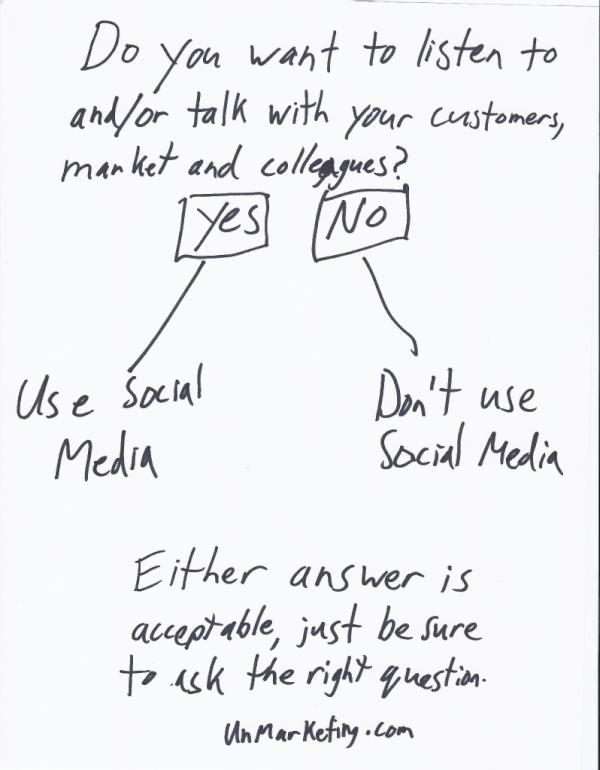 Do you want to listen to
and/or talk with your customers,
market and colleagues?
Yes No
Use Social
Media
Don't use
Social Media
Either answer is
acceptable, just be sure
to ask the right question.
UnMarketing.com